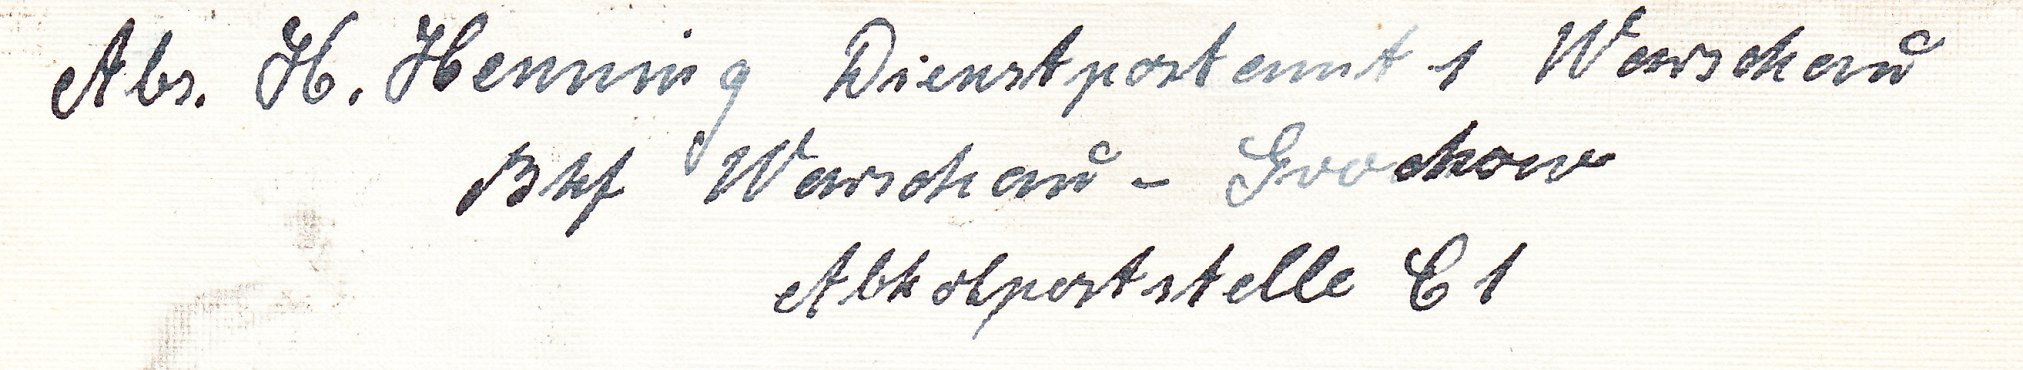 Abs. H. Henning Dienstpostamt 1 Warschau
Bhf Warschau - Grochow
Abholpoststelle C 1